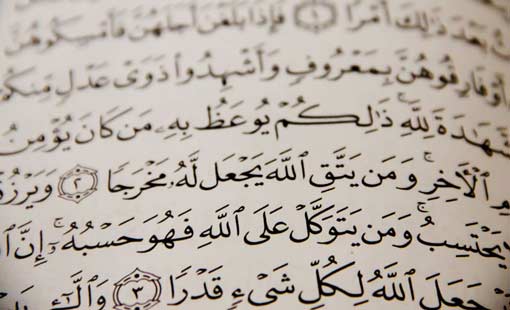 بَعْدَ ذَٰلِكَ أَمْرًا ١ فَإِذَا بَلَغْنَ أَجَلَهُنَّ فَأَمْسِكُوهُنَّ
أَوْ فَارِقُوهُنَّ بِمَعْرُوفٍ وَأَشْهِدُوا۟ ذَوَىْ عَدْلٍ مِّنكُمْ
ٱلشَّهَٰدَةَ لِلَّهِ ۚ ذَٰلِكُمْ يُوعَظُ بِهِۦ مَن كَانَ يُؤْمِنُ
ٱلْـَٔاخِرِ ۚ وَمَن يَتَّقِ ٱللَّهَ يَجْعَل لَّهُۥ مَخْرَجًا ٢ وَيَرْزُقْ
يَحْتَسِبُ ۚ وَمَن يَتَوَكَّلْ عَلَى ٱللَّهِ فَهُوَ حَسْبُهُۥٓ ۚ إِنَّ
جَعَلَ ٱللَّهُ لِكُلِّ شَىْءٍ قَدْرًا ٣ وَٱلَّٰٓـِٔى